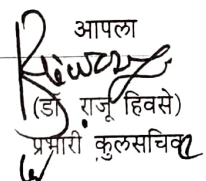 आपला
(डॉ. राजू हिवसे)
प्रभारी कुलसचिव